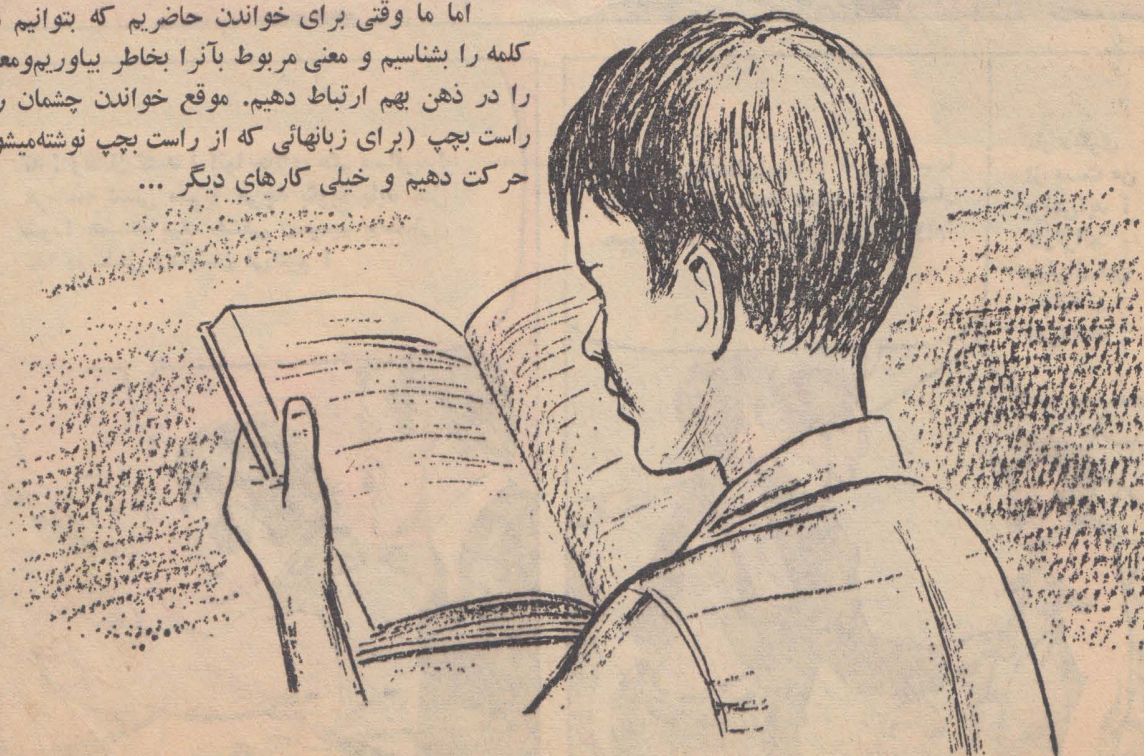 اما ما وقتی برای خواندن حاضریم که بتوانیم
کلمه را بشناسیم و معنی مربوط بآنرا بخاطر بیاوریم
را در ذهن بهم ارتباط دهیم. موقع خواندن چشمان
راست بچپ (برای زبانهائی که از راست بچپ
حرکت دهیم و خیلی کارهای دیگر ...